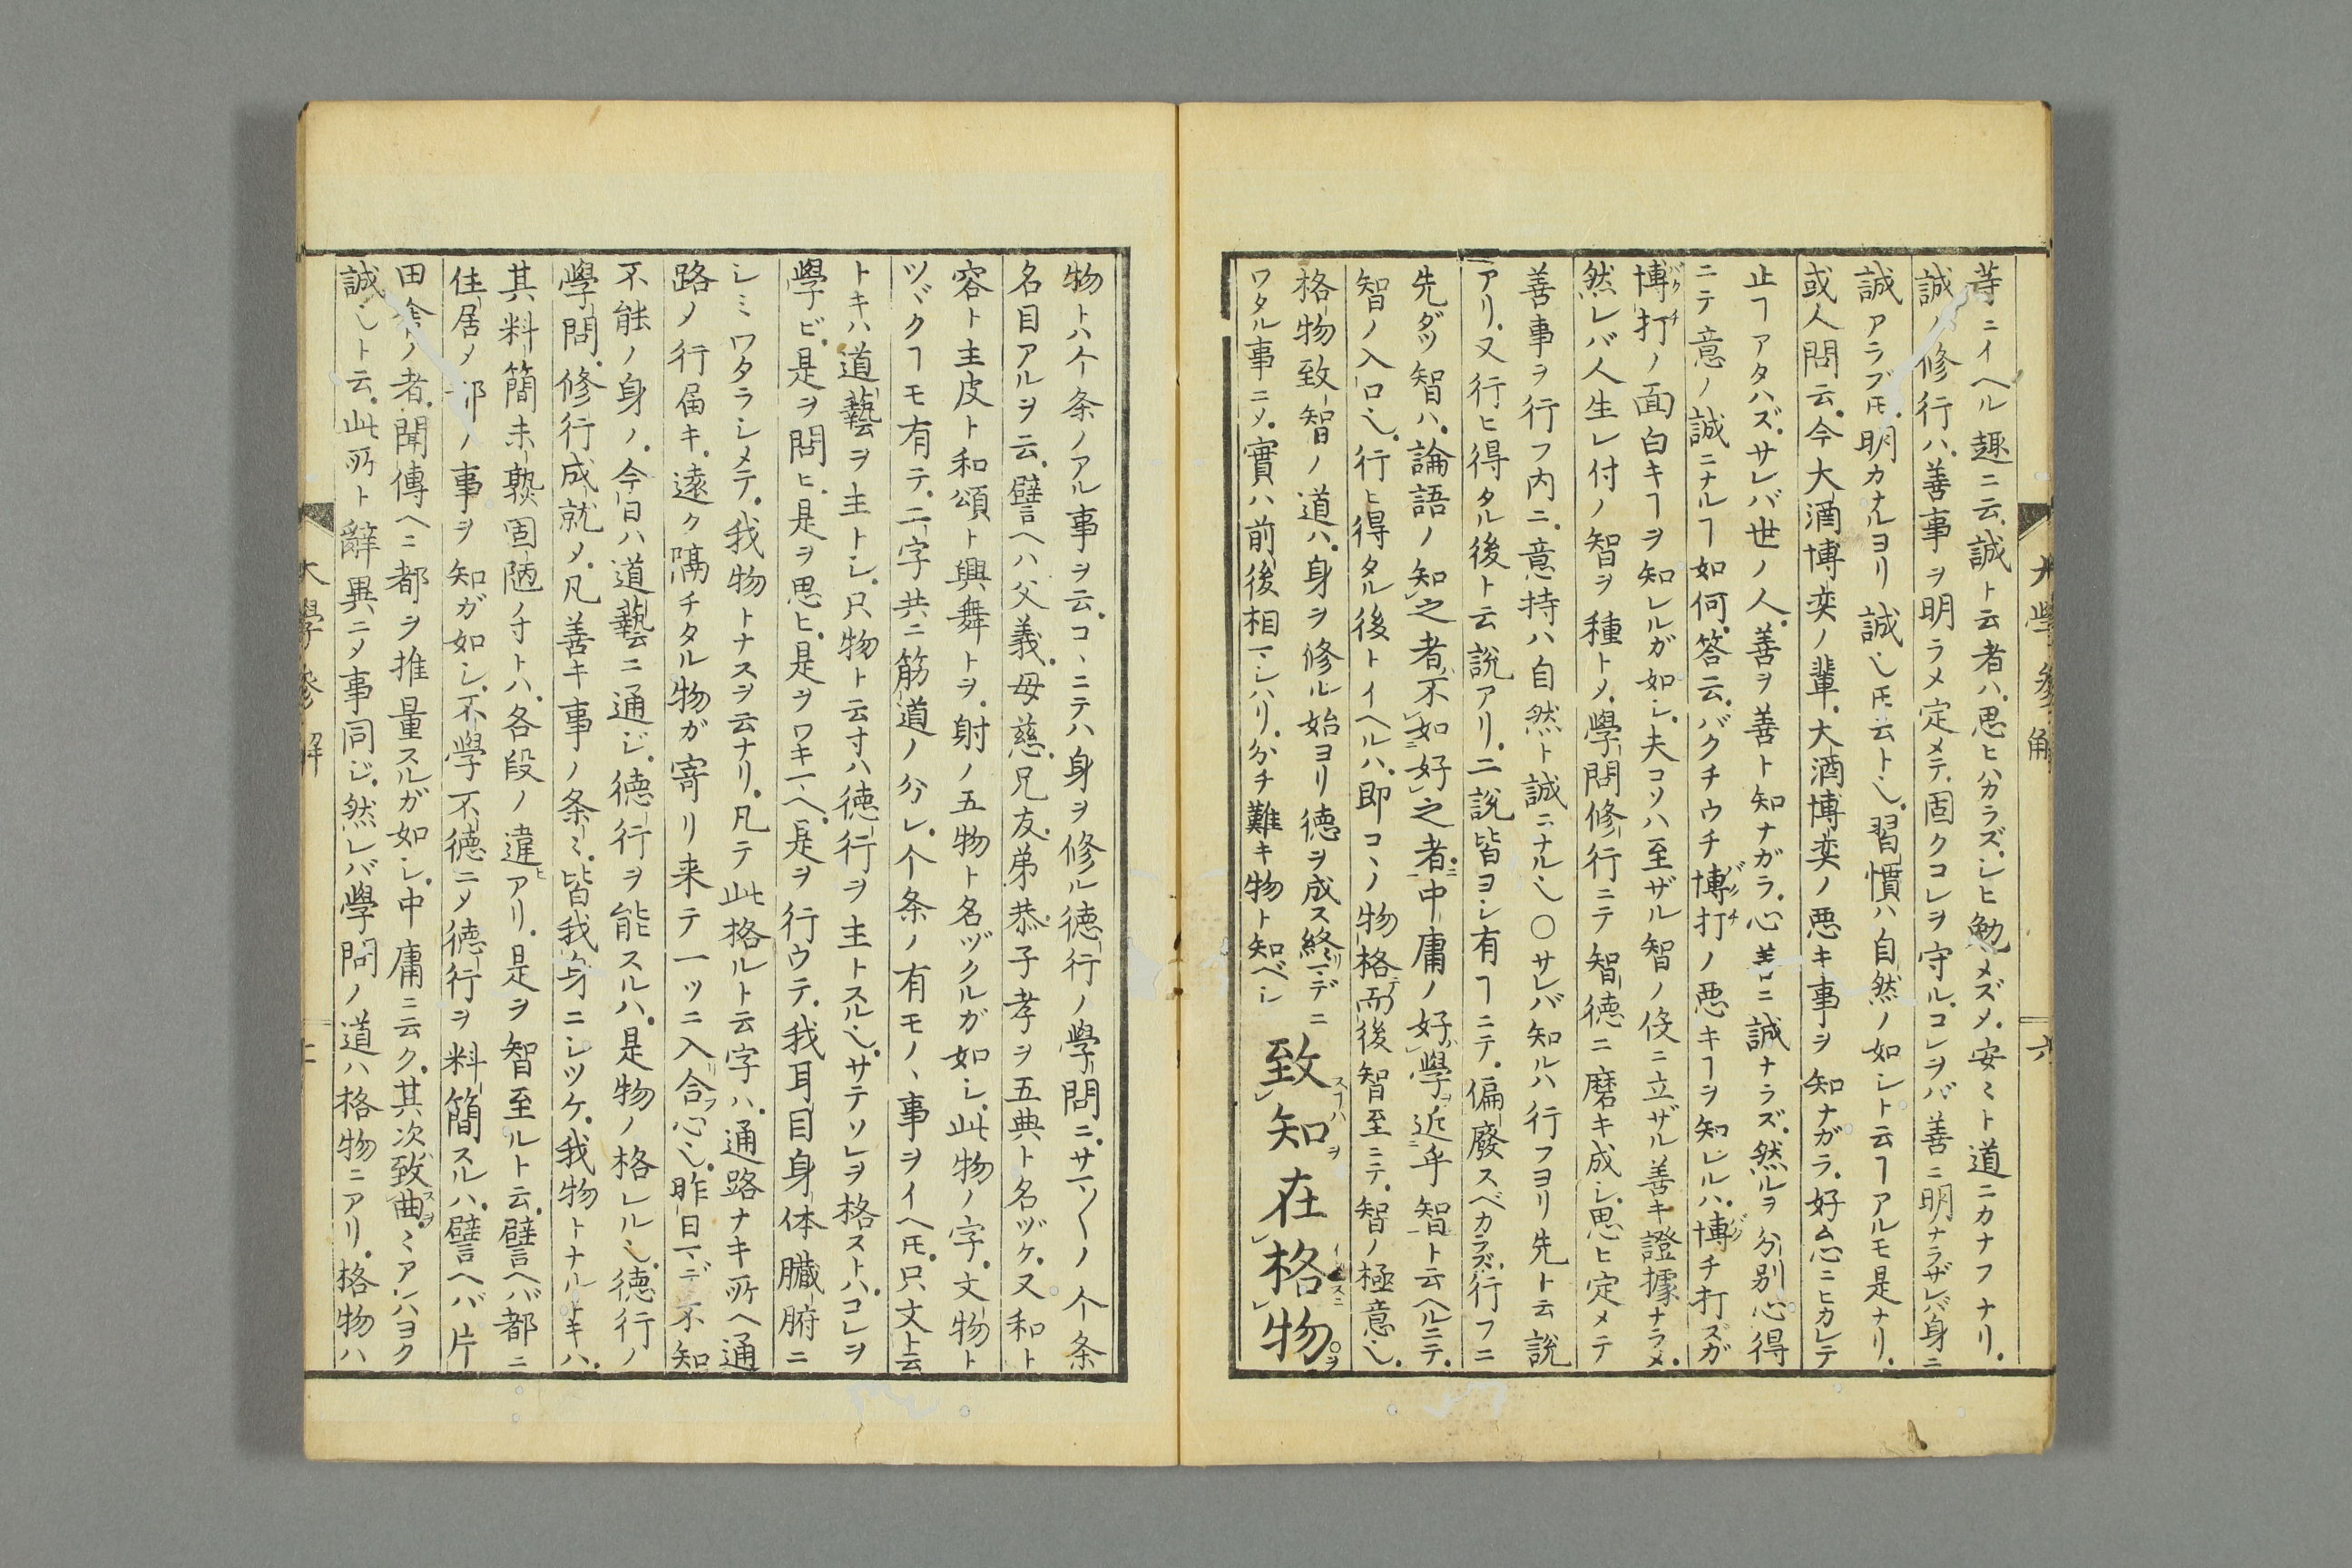 大學參解
六
䓁ニイヘル趣ニ云誠ト云者ハ思ヒハカラズシヒ勉メズメ安ミト道ニカナフナリ
誠ノ修行ハ善事ヲ明ラメ定メテ固クコレヲ守ルコレヲバ善ニ明ナラザレバ身ニ
誠アラズ𪜈明カナルヨリ誠乄𪜈云ト乄習慣ハ自然ノ如シト云ヿアルモ是ナリ
或人問云今大酒博奕ノ輩大酒博奕ノ悪キ事ヲ知ナガラ好ム心ニヒカレテ
止ヿアタハズサレバ世ノ人善ヲ善ト知ナガラ心善ニ誠ナラズ然ルヲ分別心得
ニテ意ノ誠ニナルヿ如何答云バクチウチ博打ノ悪キヿヲ知レルハ博チ打ズガ
博打ノ面白キヿヲ知レルガ如シ夫コソハ至ザル智ノ伇ニ立ザル善キ證據ナラメ
然レバ人生レ付ノ智ヲ種トメ學問修行ニテ智徳ニ磨キ成シ思ヒ定メテ
善事ヲ行フ内ニ意持ハ自然ト誠ニナル乄〇サレバ知ルハ行フヨリ先ト云說
アリ又行ヒ得タル後ト云說アリ二說皆ヨシ有ヿニテ偏廢スベカラズ行フニ
先ダツ智ハ論語ノ知之者不如好之者中庸ノ好學近乎智ト云ヘルニテ
智ノ入口乄行ヒ得タル後トイヘルハ即コヽノ物格而後智至ニテ智ノ極意乄
格物致智ノ道ハ身ヲ修ル始ヨリ徳ヲ成ス終マデニ
ワタル事ニメ實ハ前後相マシハリ分チ難キ物ト知ベシ
致知在格物
物トハ个条ノアル事ヲ云コヽニテハ身ヲ修ル徳行ノ學問ニサマ〴〵ノ个条
名目アルヲ云譬ヘハ父義母慈兄友弟恭子孝ヲ五典ト名ヅケ又和ト
容ト主皮ト和頌ト興舞トヲ射ノ五物ト名ヅクルガ如シ此物ノ字文物ト
ツヾクヿモ有テ二字共ニ筋道ノ分レ个条ノ有モノヽ事ヲイヘ𪜈只文ト云
トキハ道藝ヲ主トシ只物ト云寸ハ徳行ヲ主トスル乄サテソレヲ格ストハコレヲ
學ビ是ヲ問ヒ是ヲ思ヒ是ヲワキマヘ是ヲ行ウテ我耳目身体臓腑ニ
シミワタラシメテ我物トナスヲ云ナリ凡テ此格ルト云字ハ通路ナキ所ヘ通
路ノ行届キ遠ク隔チタル物ガ寄リ来テ一ツニ入合心乄昨日マデ不知
不能ノ身ノ今日ハ道藝ニ通ジ徳行ヲ能スルハ是物ノ格レル乄徳行ノ
學問修行成就メ凡善キ事ノ条ミ皆我身ニシツケ我物トナルトキハ
其料簡未熟固陋ノ寸トハ各段ノ違アリ是ヲ智至ルト云譬ヘバ都ニ
住居メ都ノ事ヲ知ガ如シ不學不徳ニメ徳行ヲ料簡スルハ譬ヘバ片
田舎ノ者聞傳ヘニ都ヲ推量スルガ如シ中庸ニ云ク其次致曲ミアレハヨク
誠乄ト云此所ト辭異ニメ事同ジ然レバ學問ノ道ハ格物ニアリ格物ハ
大學參解